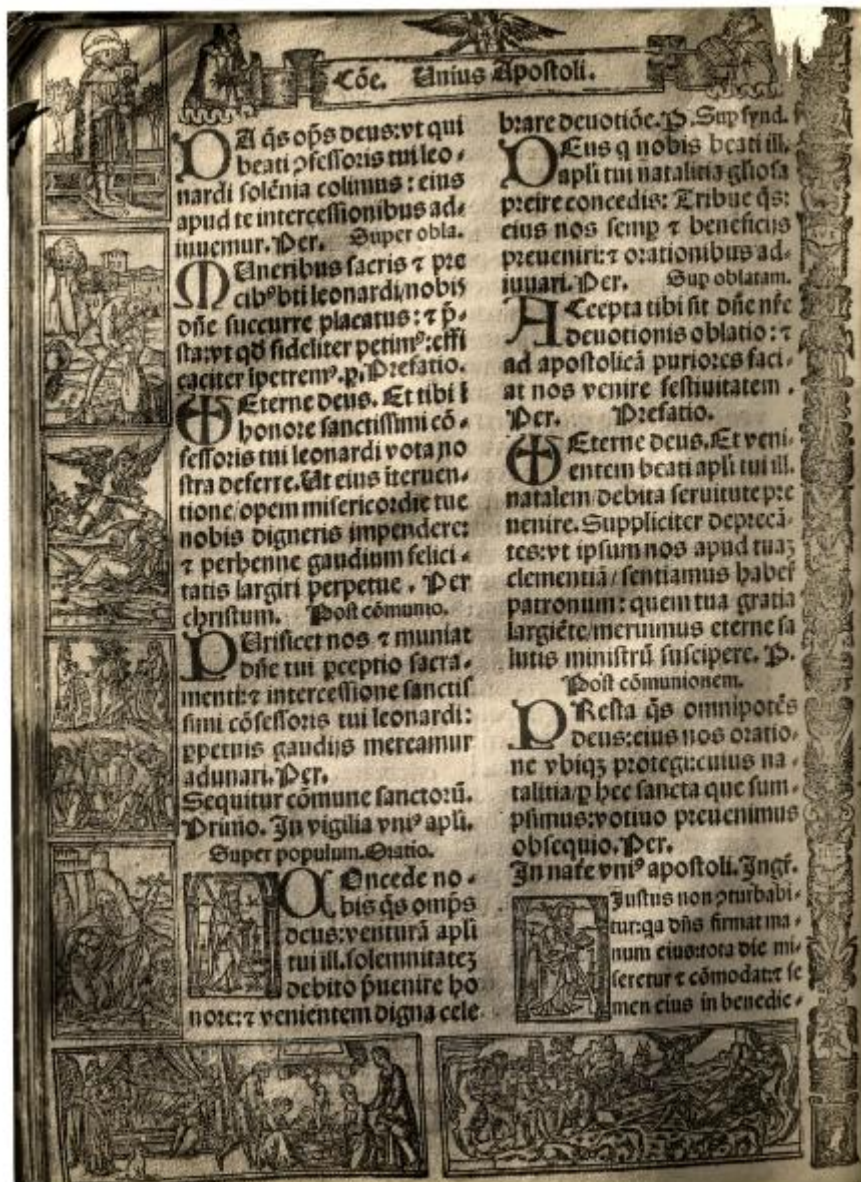 Cōe. Unius Apostoli.
DA q̄s op̄s deus: vt qui
beati ꝯfessoris tui leo⸗
nardi solēnia colimus: eius
apud te intercessionibus ad⸗
iuuemur. Per. Super obla.
MUneribus sacris ⁊ pre
cibꝰ bti leonardi/ nobis
dn̄e succurre placatus: ⁊ p̄⸗
sta: vt qd̄ fideliter petimꝰ: effi
caciter īpetremꝰ. p. Prefatio.
Eterne deus. Et tibi ī
honore sanctissimi cō⸗
fessoris tui leonardi vota no
stra deferre. Ut eius īteruen⸗
tione/ opem misericordie tue
nobis digneris impendere:
⁊ perhenne gaudium felici⸗
tatis largiri perpetue. Per
christum. Post cōmunio.
PUrificet nos ⁊ muniat
dn̄e tui ꝑceptio sacra⸗
menti: ⁊ intercessione sanctis
simi cōfessoris tui leonardi:
ꝑpetuis gaudijs mereamur
adunari. Per.
Sequitur cōmune sanctorū.
Primo. In vigilia vniꝰ apl̄i.
Super populum. Oratio.
COncede no⸗
bis q̄s omp̄s
deus: venturā apl̄i
tui ill. solemnitatez
debito p̄uenire ho
nore: ⁊ venientem digna cele
brare deuotiōe. P. Sup synd.
DEus q nobis beati ill.
apl̄i tui natalitia gl̄iosa
preire concedis: Tribue q̄s:
eius nos semꝑ ⁊ beneficiis
preueniri: ⁊ orationibus ad⸗
iuuari. Per. Sup oblatam.
ACcepta tibi sit dn̄e nr̄e
deuotionis oblatio: ⁊
ad apostolicā puriores faci⸗
at nos venire festiuitatem.
Per. Prefatio.
Eterne deus. Et veni⸗
entem beati apl̄i tui ill.
natalem/ debita seruitute pre
uenire. Suppliciter deprecā⸗
tes: vt ipsum nos apud tuaz
clementiā/ sentiamus haber̄
patronum: quem tua gratia
largiēte/ meruimus eterne sa
lutis ministrū suscipere. P.
Post cōmunionem.
PResta q̄s omnipotēs
deus: eius nos oratio⸗
ne vbiqꝫ protegi: cuius na⸗
talitia/ ꝑ hec sancta que sum⸗
psimus: votiuo preuenimus
obsequio. Per.
In nat̄e vniꝰ apostoli. Ingr̄.
Justus non ꝯturbabi⸗
tur: qa dn̄s firmat ma⸗
num eius: tota die mi⸗
seretur ⁊ cōmodat: ⁊ se
men eius in benedic⸗